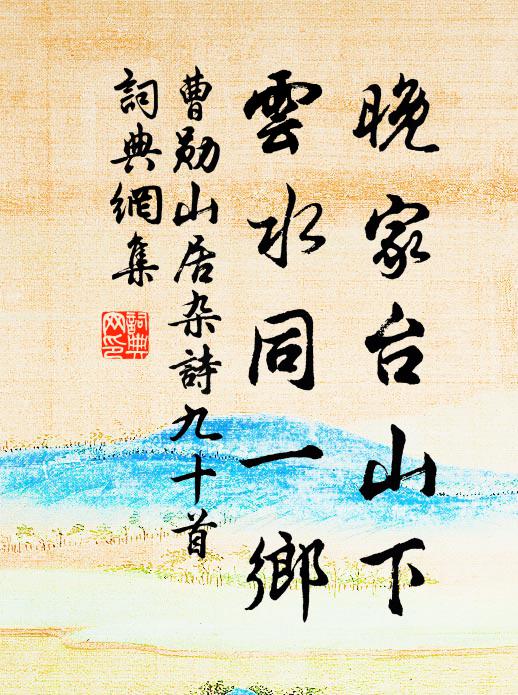 晚家台山下
雲水同一鄉
曹勋山居杂詩九十首
詞典網集
詞典
网印